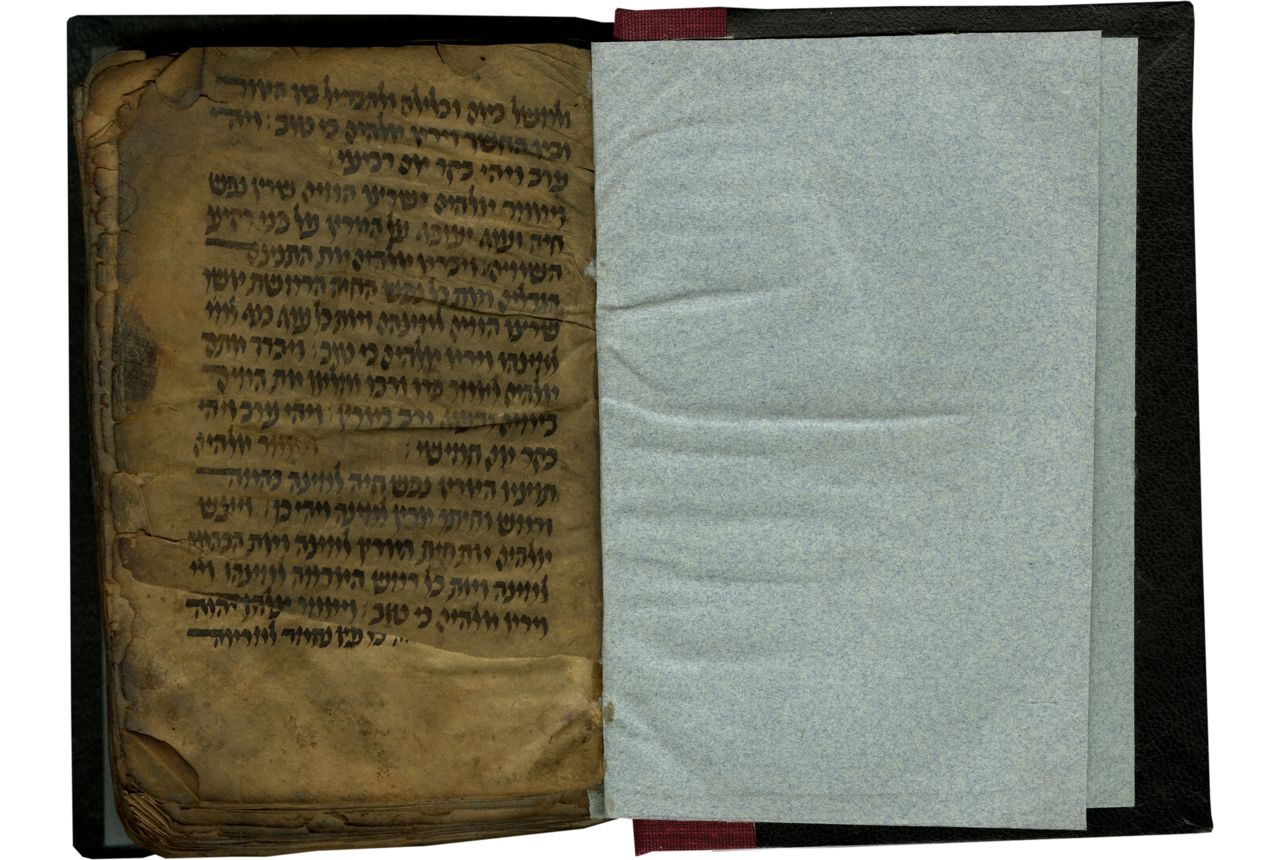 ולמשל ביום ובלילה ולהבדיל בין האור
ובין החשך וירא אלהים כי טוב : ויהי
ערב ויהי בקר יום רביעי :
ויאמר אלהים ישרצו המים שרץ נפש
חיה ועוף יעופף על הארץ על פני רקיע
השמים : ויברא אלהים את התנינם
הגדלים ואת כל נפש החיה הרומשת אשר
שרצו המים למינהם ואת כל עוף כנף למי
למינהו וירא אלהים כי טוב : ויברך אתם
אלהים לאמר פרו ורבו ומלאו את המים
בימים והעוף ירב בארץ : ויהי ערב ויהי
בקר יום חמישי : ויאמר אלהים
תוצא הארץ נפש חיה למינה בהמה
ורמש וחיתו ארץ למינה ויהי כן : ויעש
אלהים את חית הארץ למינה ואת הבהמה
למינה ואת כל רמש האדמה למינהו וי
וירא אלהים כי טוב : ויאמר יהוה
כי